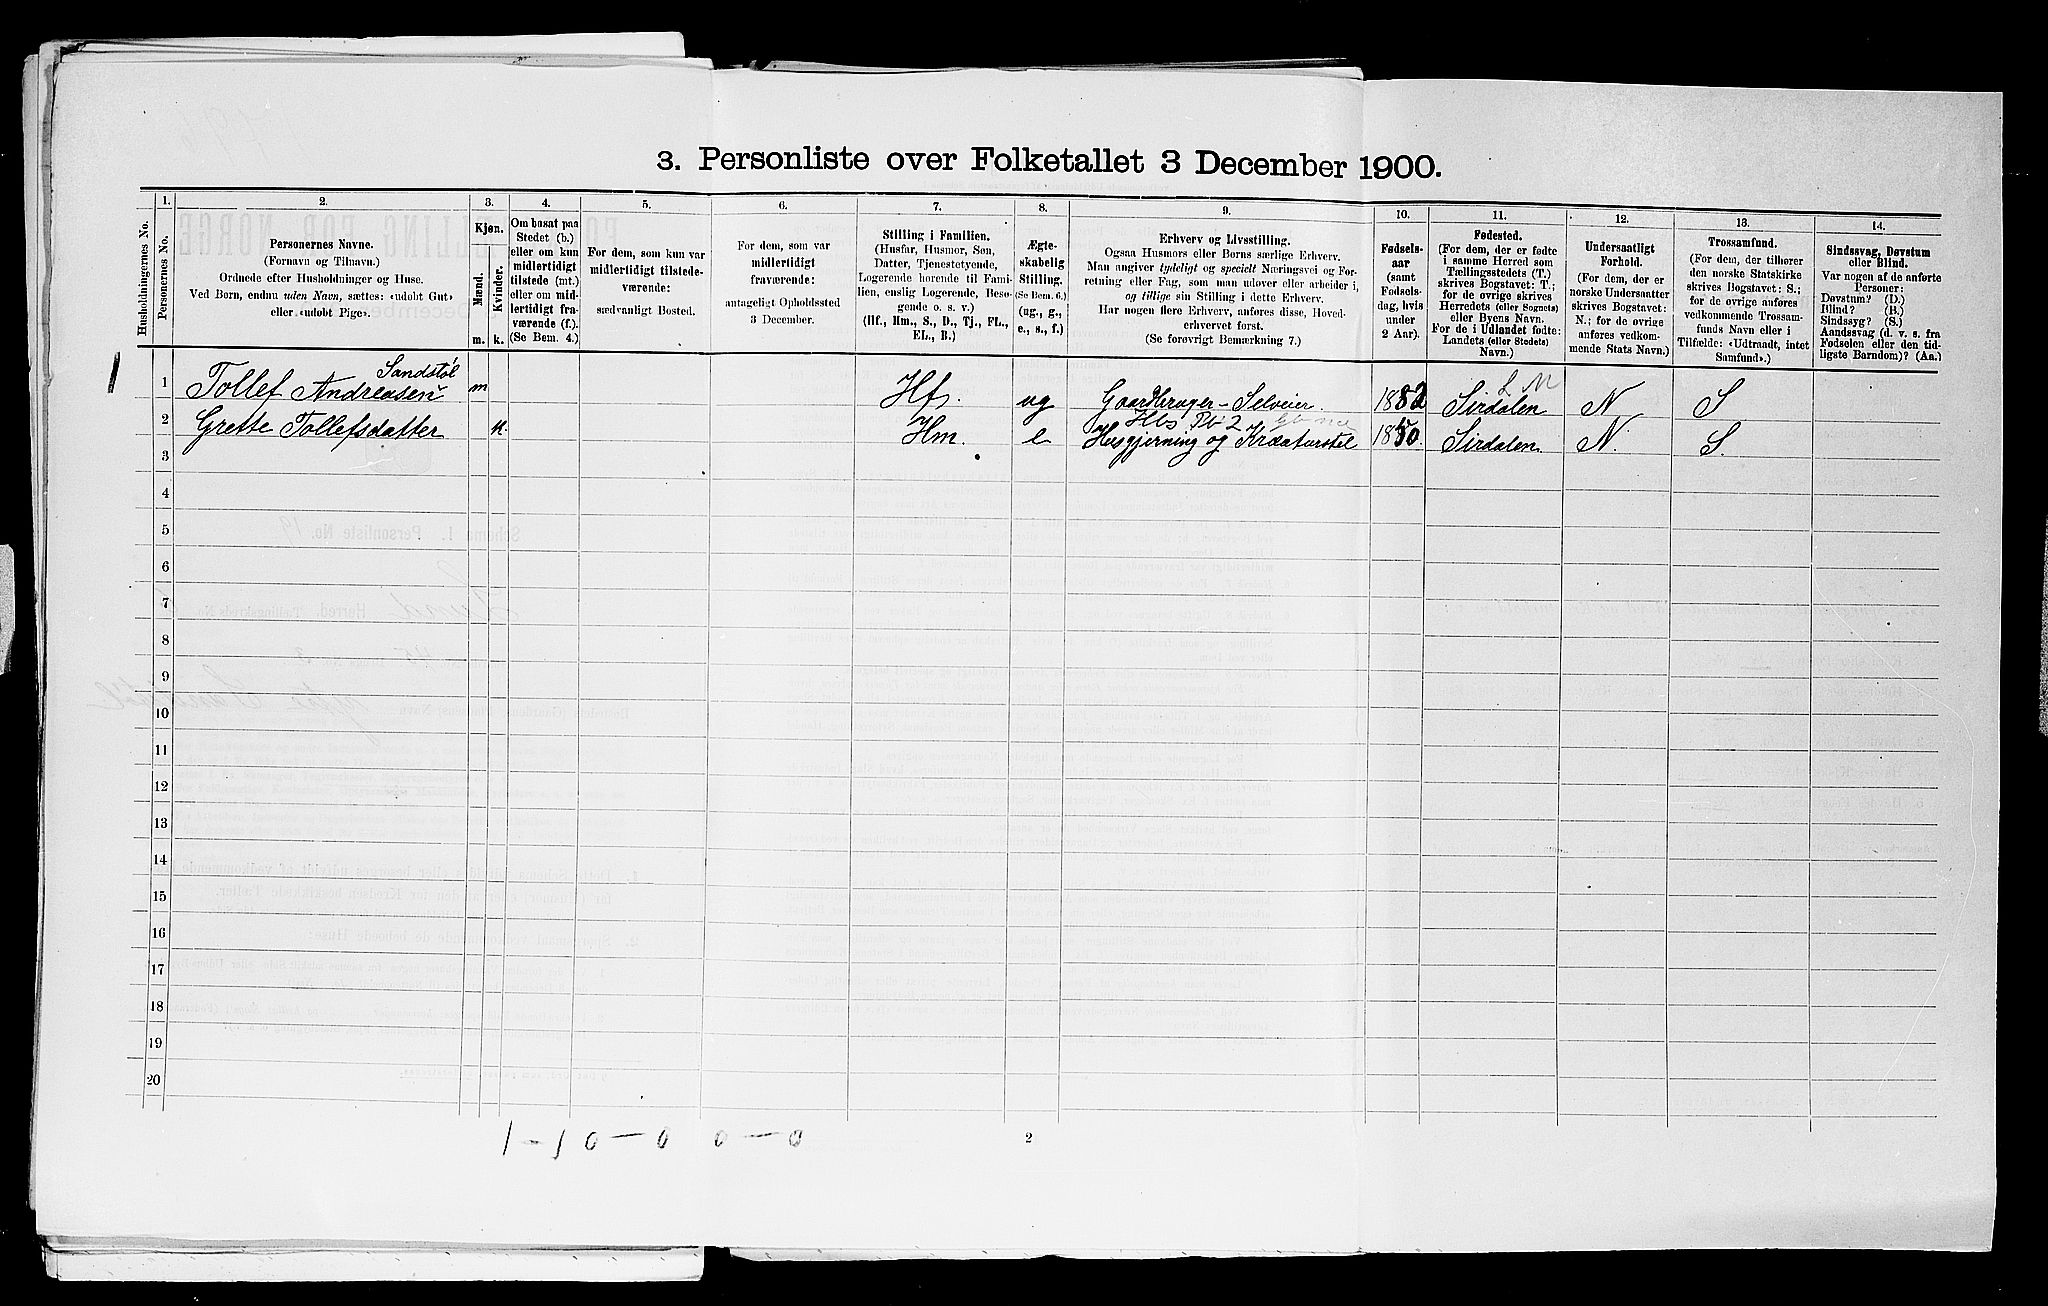 3. Personliste over Folketallet 3 December 1900.
1. 2. 3. 4. 5. 6. 7. 8. 9. 10. 11. 12. 13. 14.
Husholdningernes No.
Personernes No.
Personernes Navne.
(Fornavn og Tilnavn.)
Ordnede efter Husholdninger og Huse.
Ved Børn, endnu uden Navn, sættes: «udøbt Gut»
eller «udøbt Pige».
Kjøn.
Mænd.
Kvinder.
m. k.
Om bosat paa
Stedet (b.)
eller om kun
midlertidigt
tilstede (mt.)
eller om mid-
lertidigt fra-
værende (f.).
(Se Bem. 4.)
For dem, som kun var
midlertidigt tilstede-
værende:
sædvanligt Bosted.
For dem, som var
midlertidigt
fraværende:
antageligt Opholdssted
3 December.
Stilling i Familien.
(Husfar, Husmor, Søn,
Datter, Tjenestetyende,
Logerende hørende til Fami-
lien, enslig Logerende, Besø-
gende o. s. v.)
(Hf., Hm., S., D., Tj., FL.,
EL., B.)
Ægte-
skabelig
Stilling.
(Se Bem. 6.)
(ug., g.,
e., s., f.)
Erhverv og Livsstilling.
Ogsaa Husmors eller Børns særlige Erhverv.
Man angiver tydeligt og specielt Næringsvei og For-
retning eller Fag, som man udøver eller arbeider i,
og tillige sin Stilling i dette Erhverv.
Har nogen flere Erhverv, anføres disse, Hoved-
erhvervet først.
(Se forøvrigt Bemærkning 7.)
Fødsels-
aar
(samt
Fødsels-
dag, hvis
under
2 Aar).
Fødested.
(For dem, der er fødte
i samme Herred som
Tællingsstedets (T.)
skrives Bogstavet: T.;
for de øvrige skrives
Herredets (eller Sognets)
eller Byens Navn.
For de i Udlandet fødte:
Landets (eller Stedets)
Navn.)
Undersaatligt
Forhold.
(For dem, der er
norske Undersaatter
skrives Bogstavet:
N.; for de øvrige
anføres vedkom-
mende Stats Navn.)
Trossamfund.
(For dem, der tilhører
den norske Statskirke
skrives Bogstavet: S.;
for de øvrige anføres
vedkommende Trossam-
funds Navn eller i
Tilfælde: «Udtraadt, intet
Samfund».)
Sindssvag, Døvstum
eller Blind.
Var nogen af de anførte
Personer:
Døvstum? (D.)
Blind? (B.)
Sindssyg? (S.)
Aandssvag (d. v. s. fra
Fødselen eller den tid-
ligste Barndom)? (Aa.)
Sandstøl L M
1 Tollef Andreasen m Hf. ug Gaardbruger-Selveier. 1882 Sirdalen N S
Hbs Pb 2
2 Grette Tollefsdatter k. Hm. e Husgjerning og Kreaturstel 1850. Sirdalen N. S.
3
4
5
6
7
8
9
10
11
12
13
14
15
16
17
18
19
20
1 - 10 - 0 0 - 0
2